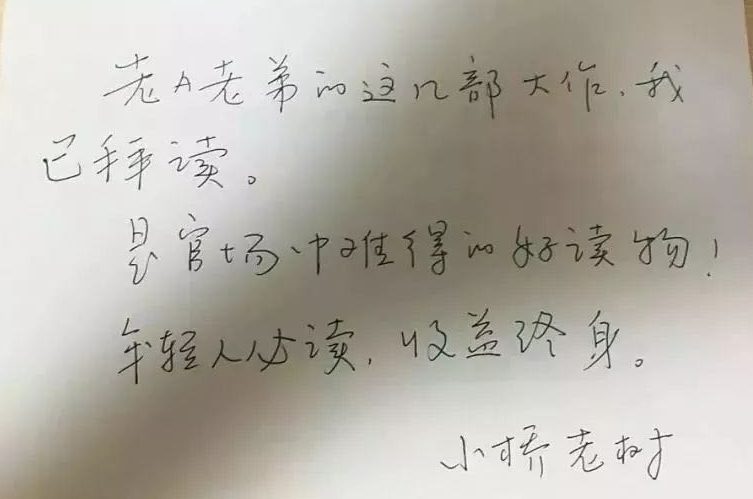 老A老弟的这几部大作、我
已拜读。
是官场中难得的好读物！
年轻人必读，收益终身。
小桥老树